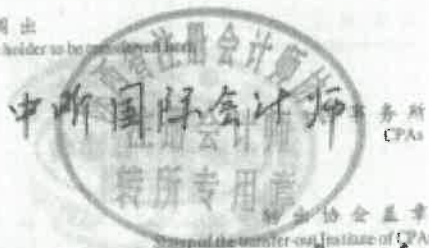 调出
holder to be
注册会计师
中昕国际会计师 事务所
CPAs
注册会计师
转所专用章
转出协会盖章
Stamp of the transfer-out Institute of CPAs